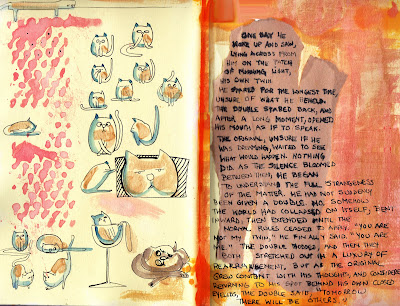 ONE DAY HE
WOKE UP AND SAW,
LYING ACROSS FROM
HIM ON THE PATCH
OF MORNING LIGHT,
HIS OWN TWIN.
HE STARED FOR THE LONGEST TIME,
UNSURE OF WHAT HE BEHELD.
THE DOUBLE STARED BACK, AND
AFTER A LONG MOMENT, OPENED
HIS MOUTH AS IF TO SPEAK.
THE ORIGINAL, UNSURE IF HE
WAS DREAMING, WAITED TO SEE
WHAT WOULD HAPPEN. NOTHING
DID. AS THE SILENCE BLOOMED
BETWEEN THEM, HE BEGAN
TO UNDERSTAND THE FULL STRANGENESS
OF THE MATTER. HE HAD NOT SUDDENLY
BEEN GIVEN A DOUBLE. NO, SOMEHOW
THE WORLD HAD COLLAPSED ON ITSELF, BENT
INWARD, THEN EXTENDED UNTIL THE
NORMAL RULES CEASED TO APPLY. "YOU ARE
NOT MY TWIN," HE FINALLY SAID. "YOU ARE
ME." THE DOUBLE NODDED, AND THEN THEY
BOTH STRETCHED OUT IN A LUXURY OF
REARRANGEMENT, BUT AS THE ORIGINAL
GREW CONTENT WITH HIS THOUGHTS, AND CONSIDERED
RETURNING TO HIS SPOT BEHIND HIS OWN CLOSED
EYELIDS, THE DOUBLE SAID, "TOMORROW
THERE WILL BE OTHERS."